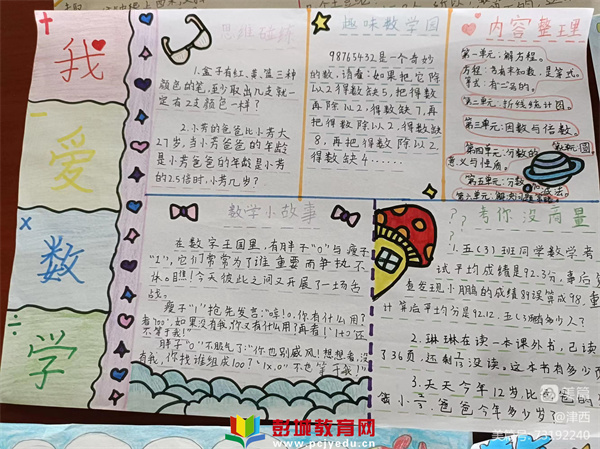 我
爱
数
学
思维碰碎
1.盒子有红、黄、蓝三种
颜色的笔,至少取出几支就一
定有2支颜色一样?
2.小考的爸爸比小考大
27岁,当小考爸爸的年龄
是小考爸爸的年龄是小考
的2.5倍时,小考几岁?
趣味数学园
98765432是一个奇妙
的数,请看:如果把它除
以2得数缺5,把得数
再除以2,得数缺7,再
把得数除以2,得数缺
8,再把得数除以2,
得数缺4……
内容整理
第一单元:解方程。
方程:含有未知数,是等式。
等式:有=号的。
第二单元:折线统计图。
第三单元:因数与倍数。
第四单元:分数的
意义与性质。
第五单元:分数
数学小故事
在数字王国里,有胖子"0"与瘦子
"1",它们常常为了谁重要而争执不
休。瞧!今天彼此之间又开展了一场舌
战。
瘦子"1"抢先发言:"哼!0,你有什么用?
者'100',如果没有我,你又有什么用?再看!'1+0'还
不等于我!"
胖子"0"不服气了:"你也别威风!想想看,没
有我,你找谁组成100?'1×0'不也等于我!"
考你没商量
? ? ?
1.五(3)班同学数学考
试平均成绩是92.3分,事后
查发现小鹏的成绩89误算成98,重
计算后平均分是92.12,五(3)
2.琳琳在读一本课外书,已读
了36页,还剩 没读。这本书有多少页
3.天天今年12岁,比爸爸的
爸爸今年多少岁?
彭城教育网
www.pcjyedu.cn
美篇
@津西